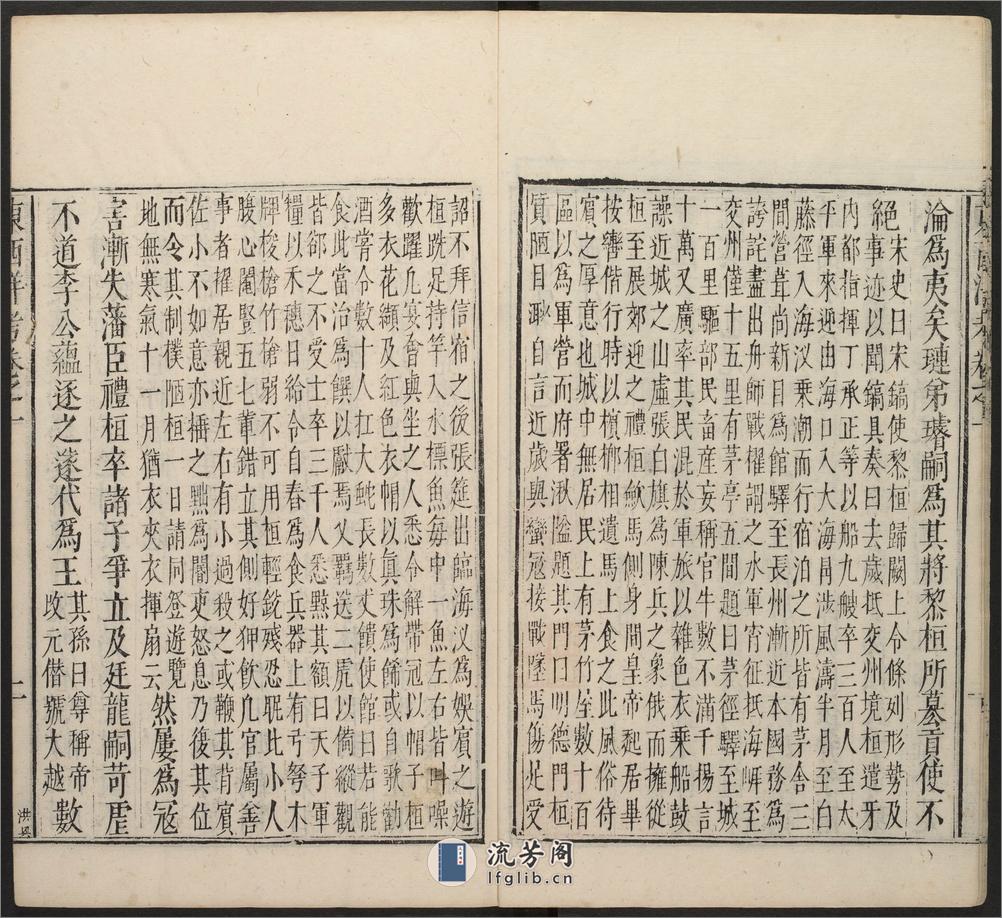 淪爲夷矣璉弟璿嗣爲其將黎桓所簒貢使不
絕宋史曰宋鎬使黎桓歸闕上令條列形勢及
事迹以聞鎬具奏曰去歲抵交州境桓遣牙
內都指揮丁承正等以船九艘卒三百人至太
平軍來迎由海口入大海冐涉風濤半月至白
藤徑入海汊乘潮而行宿泊之所皆有茅舍三
間營葺尚新目爲館驛至長州漸近本國務爲
誇詫盡出舟師戰櫂謂之水軍宵征抵海岸至
交州僅十五里有茅亭五間題曰茅徑驛至城
一百里驅部民畜産妄稱官牛數不滿千揚言
十萬又廣率其民混於軍旅以雜色衣乘船鼓
譟近城之山虛張白旗爲陳兵之象俄而擁從
桓至展郊迎之禮桓歛馬側身問皇帝起居畢
按轡偕行時以檳榔相遺馬上食之此風俗待
賓之厚意也城中無居民上有茅竹屋數十百
區以爲軍營而府署湫隘題其門曰明德門桓
質陋目眇自言近歲與蠻冦接戰墜馬傷足受
詔不拜信宿之後張筵出臨海汊爲娛賓之遊
桓跣足持竿入水標魚每中一魚左右皆叫噪
歡躍凡宴會與坐之人悉令解帶冠以帽子桓
多衣花纈及紅色衣帽以眞珠爲餙或自歌勸
酒嘗令數十人扛大蛇長數丈饋使館曰若能
食此當治爲饌以獻焉又羈送二虎以備縱觀
皆郤之不受士卒三千人悉黥其額曰天子軍
糧以禾穗日給令自舂爲食兵器上有弓弩木
牌梭槍竹槍弱不可用桓輕銳殘忍昵此小人
腹心閹豎五七軰錯立其側好狎飲凡官屬善
事者擢居親近左右有小過殺之或鞭其背賓
佐小不如意亦捶之黜爲閽吏怒息乃後其位
而令其制樸陋桓一日請同登遊覽
地無寒氣十一月猶衣夾衣揮扇云
然屢爲冦
害漸失藩臣禮桓卒諸子爭立及廷龍嗣苛虐
不道李公蘊逐之遂代爲王
其孫日尊稱帝
改元僭號大越
數
東西洋考卷之一
二
流芳阁
lfglib.cn